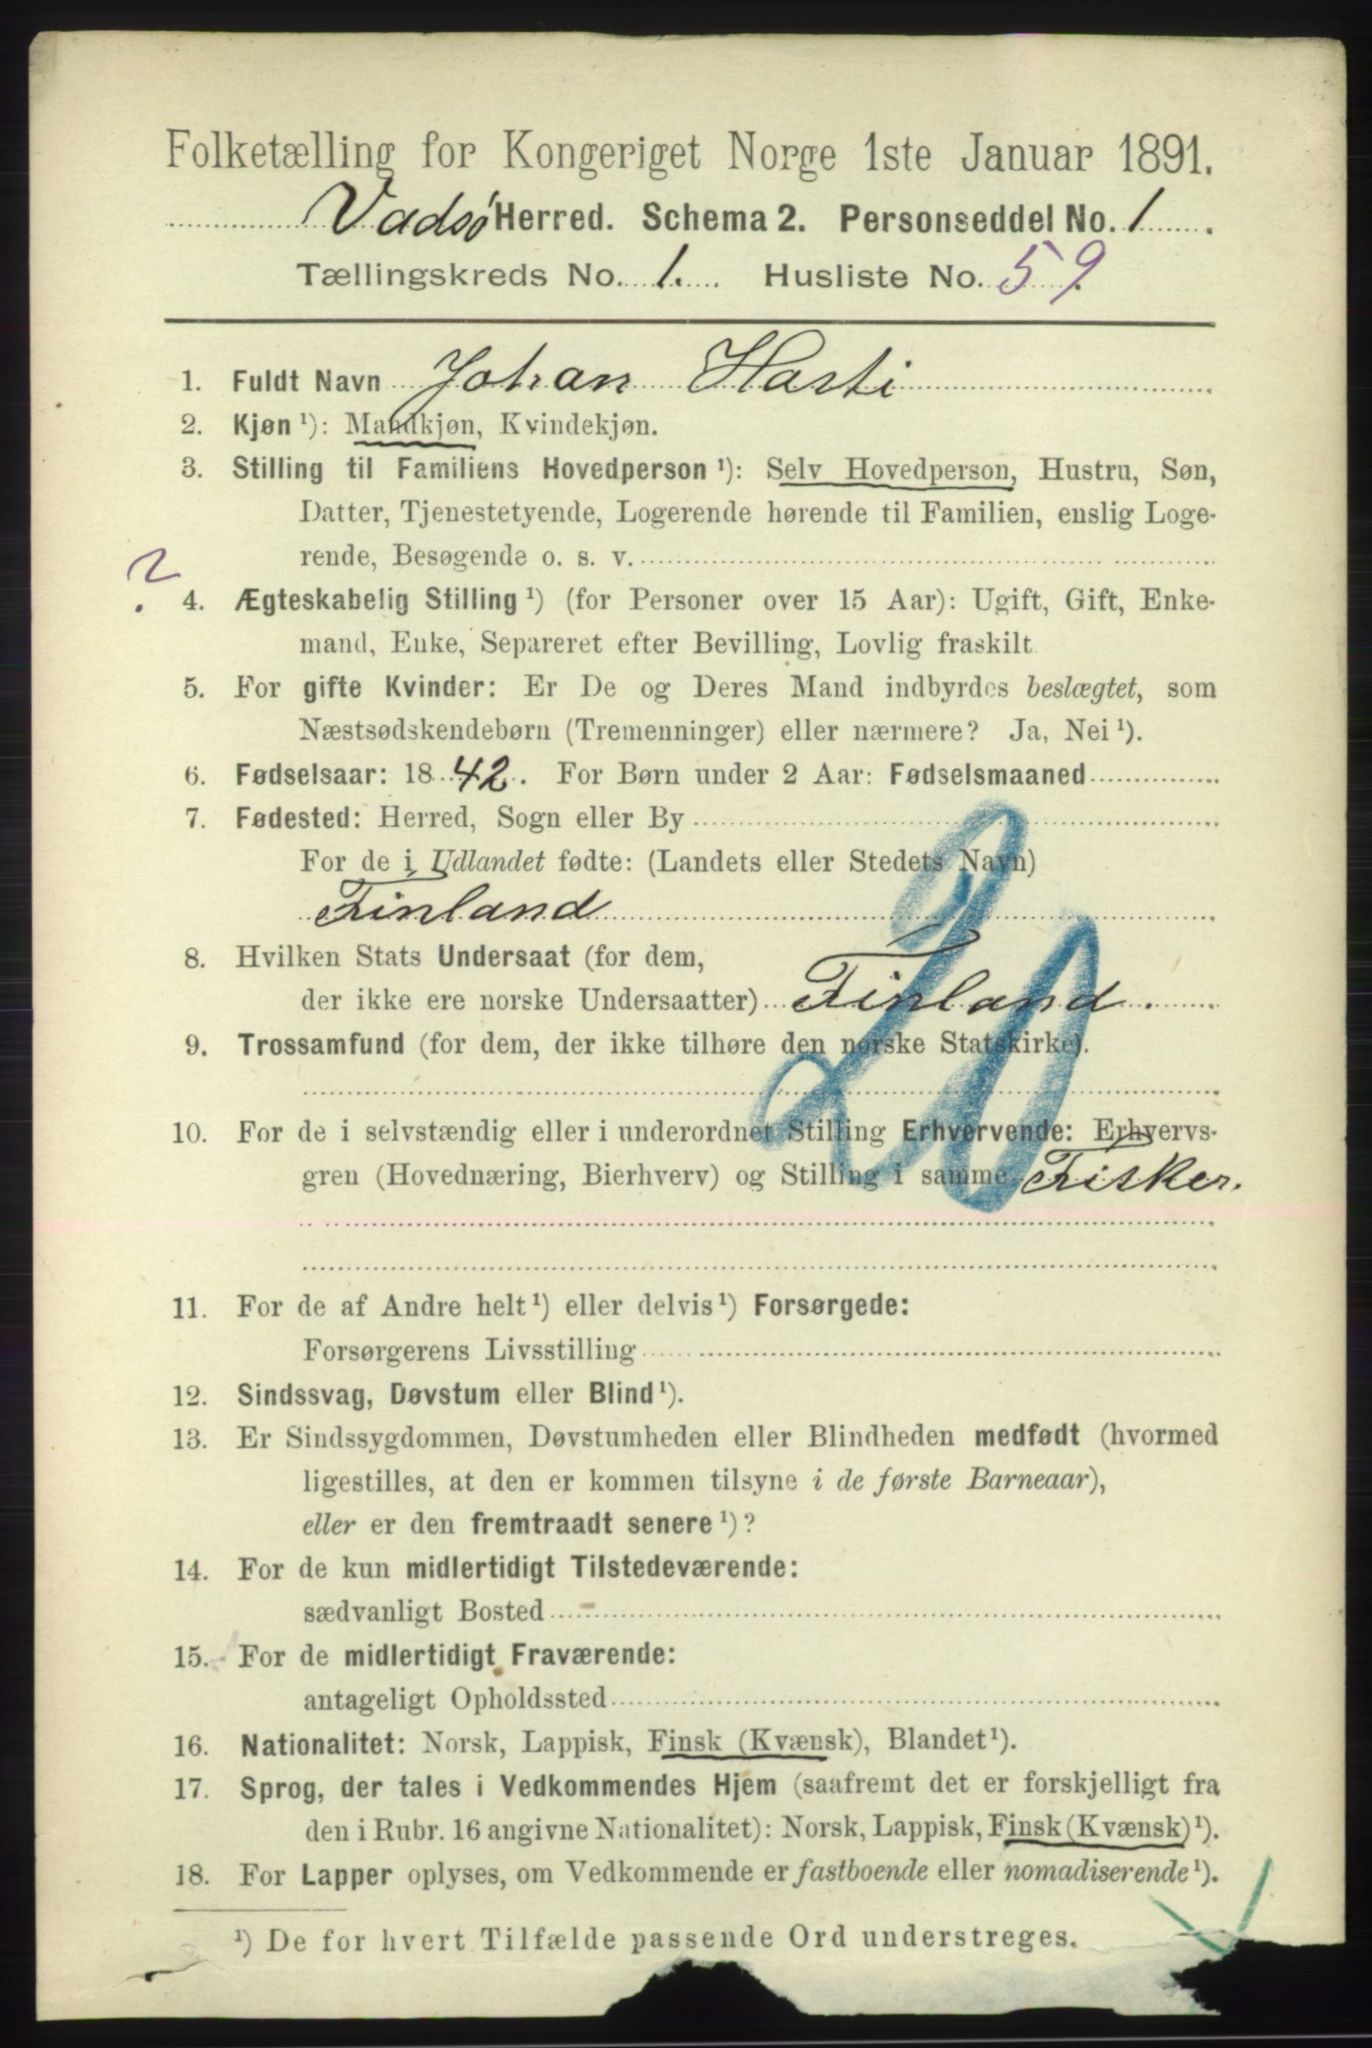 Folketælling for Kongeriget Norge 1ste Januar 1891.
Vadsø Herred. Schema 2. Personseddel No. 1.
Tællingskreds No. 1. Husliste No. 59.
1. Fuldt Navn Johan Harti
2. Kjøn ¹): Mandkjøn, Kvindekjøn.
3. Stilling til Familiens Hovedperson ¹): Selv Hovedperson, Hustru, Søn,
Datter, Tjenestetyende, Logerende hørende til Familien, enslig Loge-
rende, Besøgende o. s. v.
? 4. Ægteskabelig Stilling ¹) (for Personer over 15 Aar): Ugift, Gift, Enke-
mand, Enke, Separeret efter Bevilling, Lovlig fraskilt
5. For gifte Kvinder: Er De og Deres Mand indbyrdes beslægtet, som
Næstsødskendebørn (Tremenninger) eller nærmere? Ja, Nei ¹).
6. Fødselsaar: 1842. For Børn under 2 Aar: Fødselsmaaned
7. Fødested: Herred, Sogn eller By
For de i Udlandet fødte: (Landets eller Stedets Navn)
Finland
20
8. Hvilken Stats Undersaat (for dem,
der ikke ere norske Undersaatter) Finland.
9. Trossamfund (for dem, der ikke tilhøre den norske Statskirke).
10. For de i selvstændig eller i underordnet Stilling Erhvervende: Erhvervs-
gren (Hovednæring, Bierhverv) og Stilling i samme Fisker.
11. For de af Andre helt ¹) eller delvis ¹) Forsørgede:
Forsørgerens Livsstilling
12. Sindssvag, Døvstum eller Blind ¹).
13. Er Sindssygdommen, Døvstumheden eller Blindheden medfødt (hvormed
ligestilles, at den er kommen tilsyne i de første Barneaar),
eller er den fremtraadt senere ¹)?
14. For de kun midlertidigt Tilstedeværende:
sædvanligt Bosted
15. For de midlertidigt Fraværende:
antageligt Opholdssted
16. Nationalitet: Norsk, Lappisk, Finsk (Kvænsk), Blandet ¹).
17. Sprog, der tales i Vedkommendes Hjem (saafremt det er forskjelligt fra
den i Rubr. 16 angivne Nationalitet): Norsk, Lappisk, Finsk (Kvænsk) ¹).
18. For Lapper oplyses, om Vedkommende er fastboende eller nomadiserende ¹).
¹) De for hvert Tilfælde passende Ord understreges.